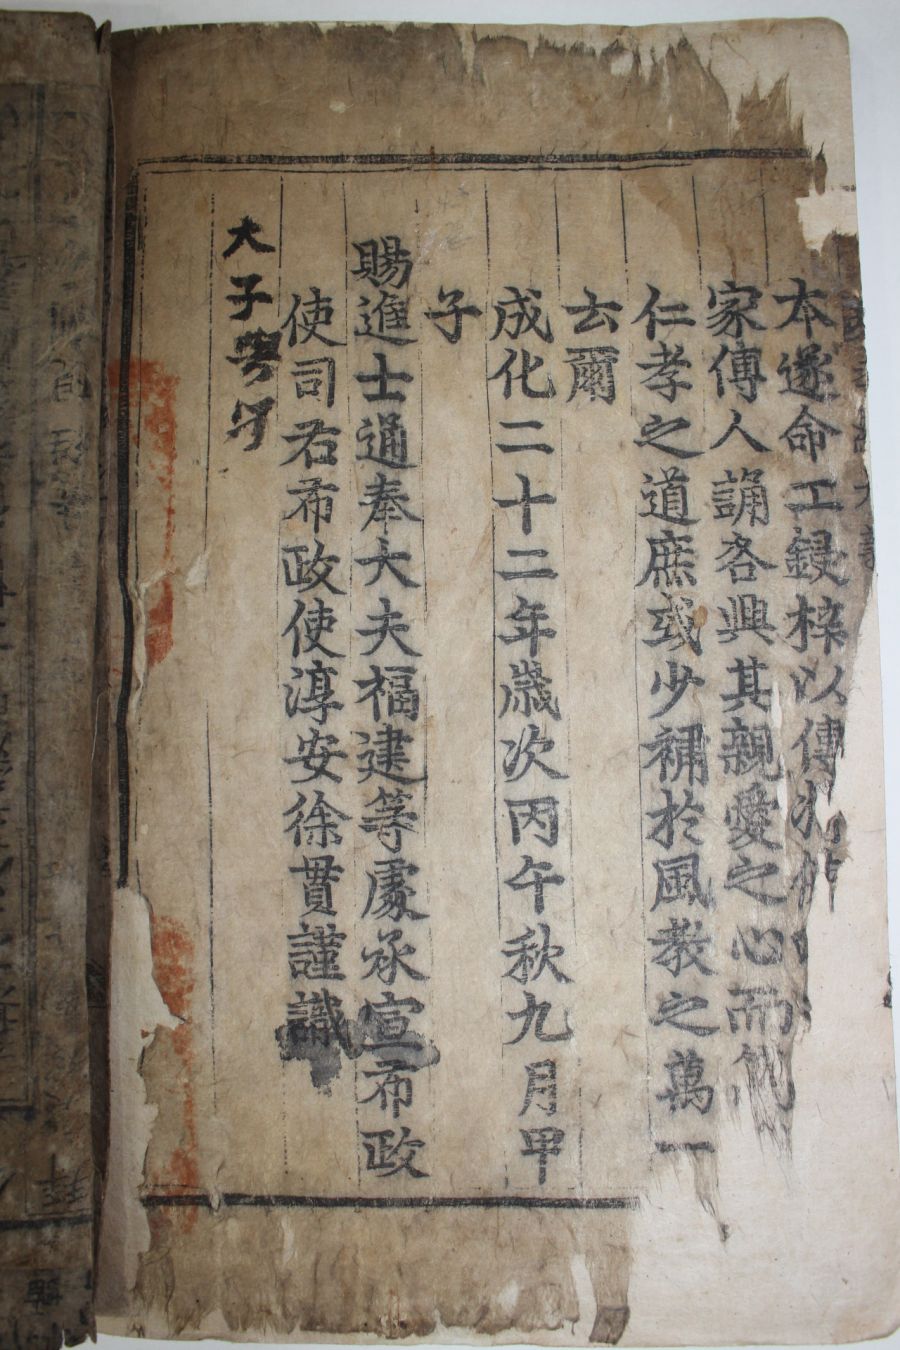 本遂命工鋟梓以傳
家傳人誦各興其親愛之心而
仁孝之道庶或少補於風教之萬一
云爾
成化二十二年歲次丙午秋九月甲
子
賜進士通奉大夫福建等處承宣布政
使司右布政使淳安徐貫謹識
大子